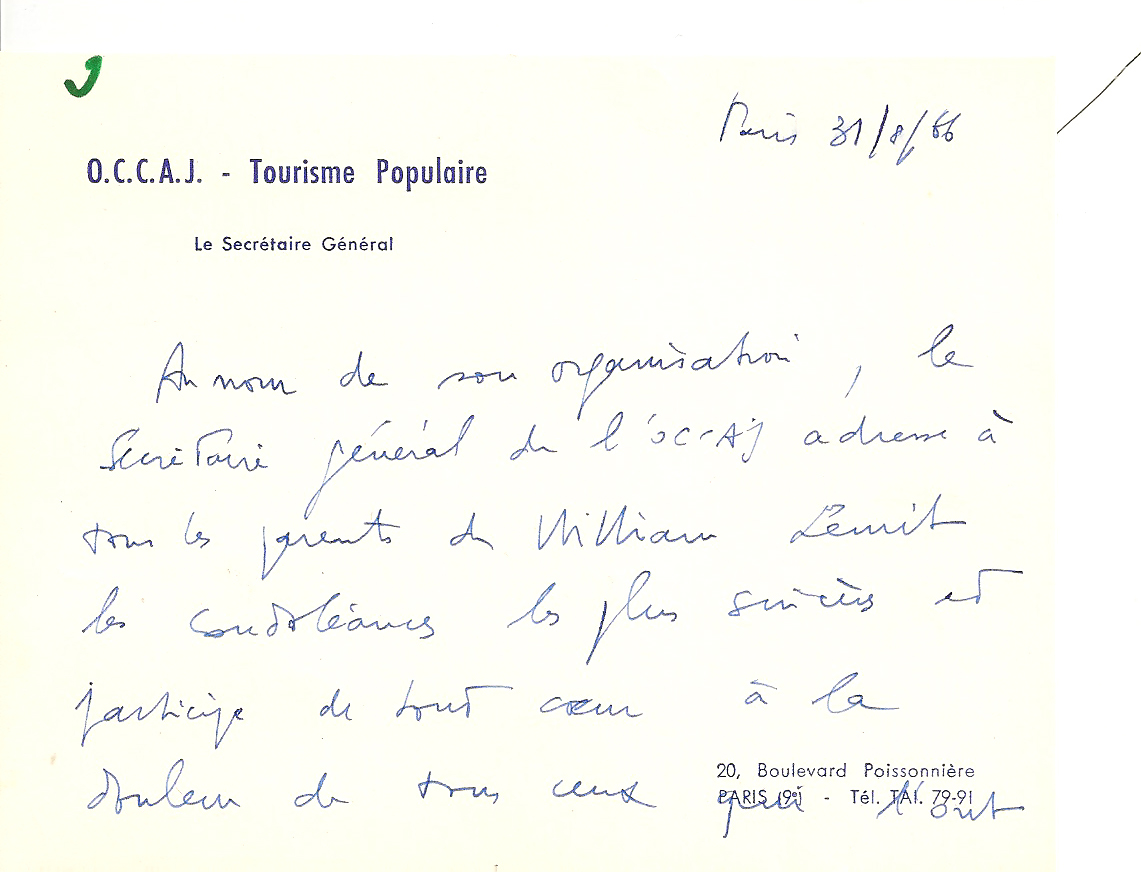 Paris 31/8/66
O.C.C.A.J. - Tourisme Populaire
Le Secrétaire Général
Au nom de son organisation, le
Secrétaire général de l'OCCAJ adresse à
tous les parents de William Lemit
les condoléances les plus sincères et
participe de tout cœur à la
douleur de tous ceux qui l'ont
20, Boulevard Poissonnière
PARIS (9e) - Tél. TAI. 79-91